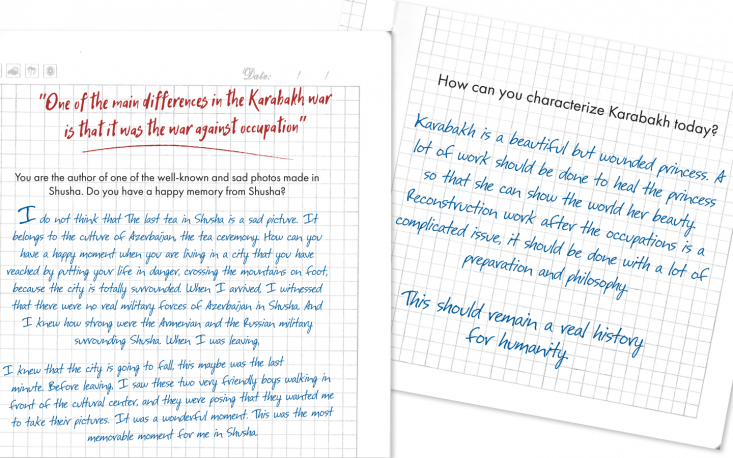 Date: / /
"One of the main differences in the Karabakh war
is that it was the war against occupation"
You are the author of one of the well-known and sad photos made in
Shusha. Do you have a happy memory from Shusha?
I do not think that The last tea in Shusha is a sad picture. It
belongs to the culture of Azerbaijan, the tea ceremony. How can you
have a happy moment when you are living in a city that you have
reached by putting your life in danger, crossing the mountains on foot,
because the city is totally surrounded. When I arrived, I witnessed
that there were no real military forces of Azerbaijan in Shusha. And
I knew how strong were the Armenian and the Russian military
surrounding Shusha. When I was leaving,
I knew that the city is going to fall, this maybe was the last
minute. Before leaving, I saw these two very friendly boys walking in
front of the cultural center, and they were posing that they wanted me
to take their pictures. It was a wonderful moment. This was the most
memorable moment for me in Shusha.
How can you characterize Karabakh today?
Karabakh is a beautiful but wounded princess. A
lot of work should be done to heal the princess
so that she can show the world her beauty.
Reconstruction work after the occupations is a
complicated issue, it should be done with a lot of
preparation and philosophy.
This should remain a real history
for humanity.